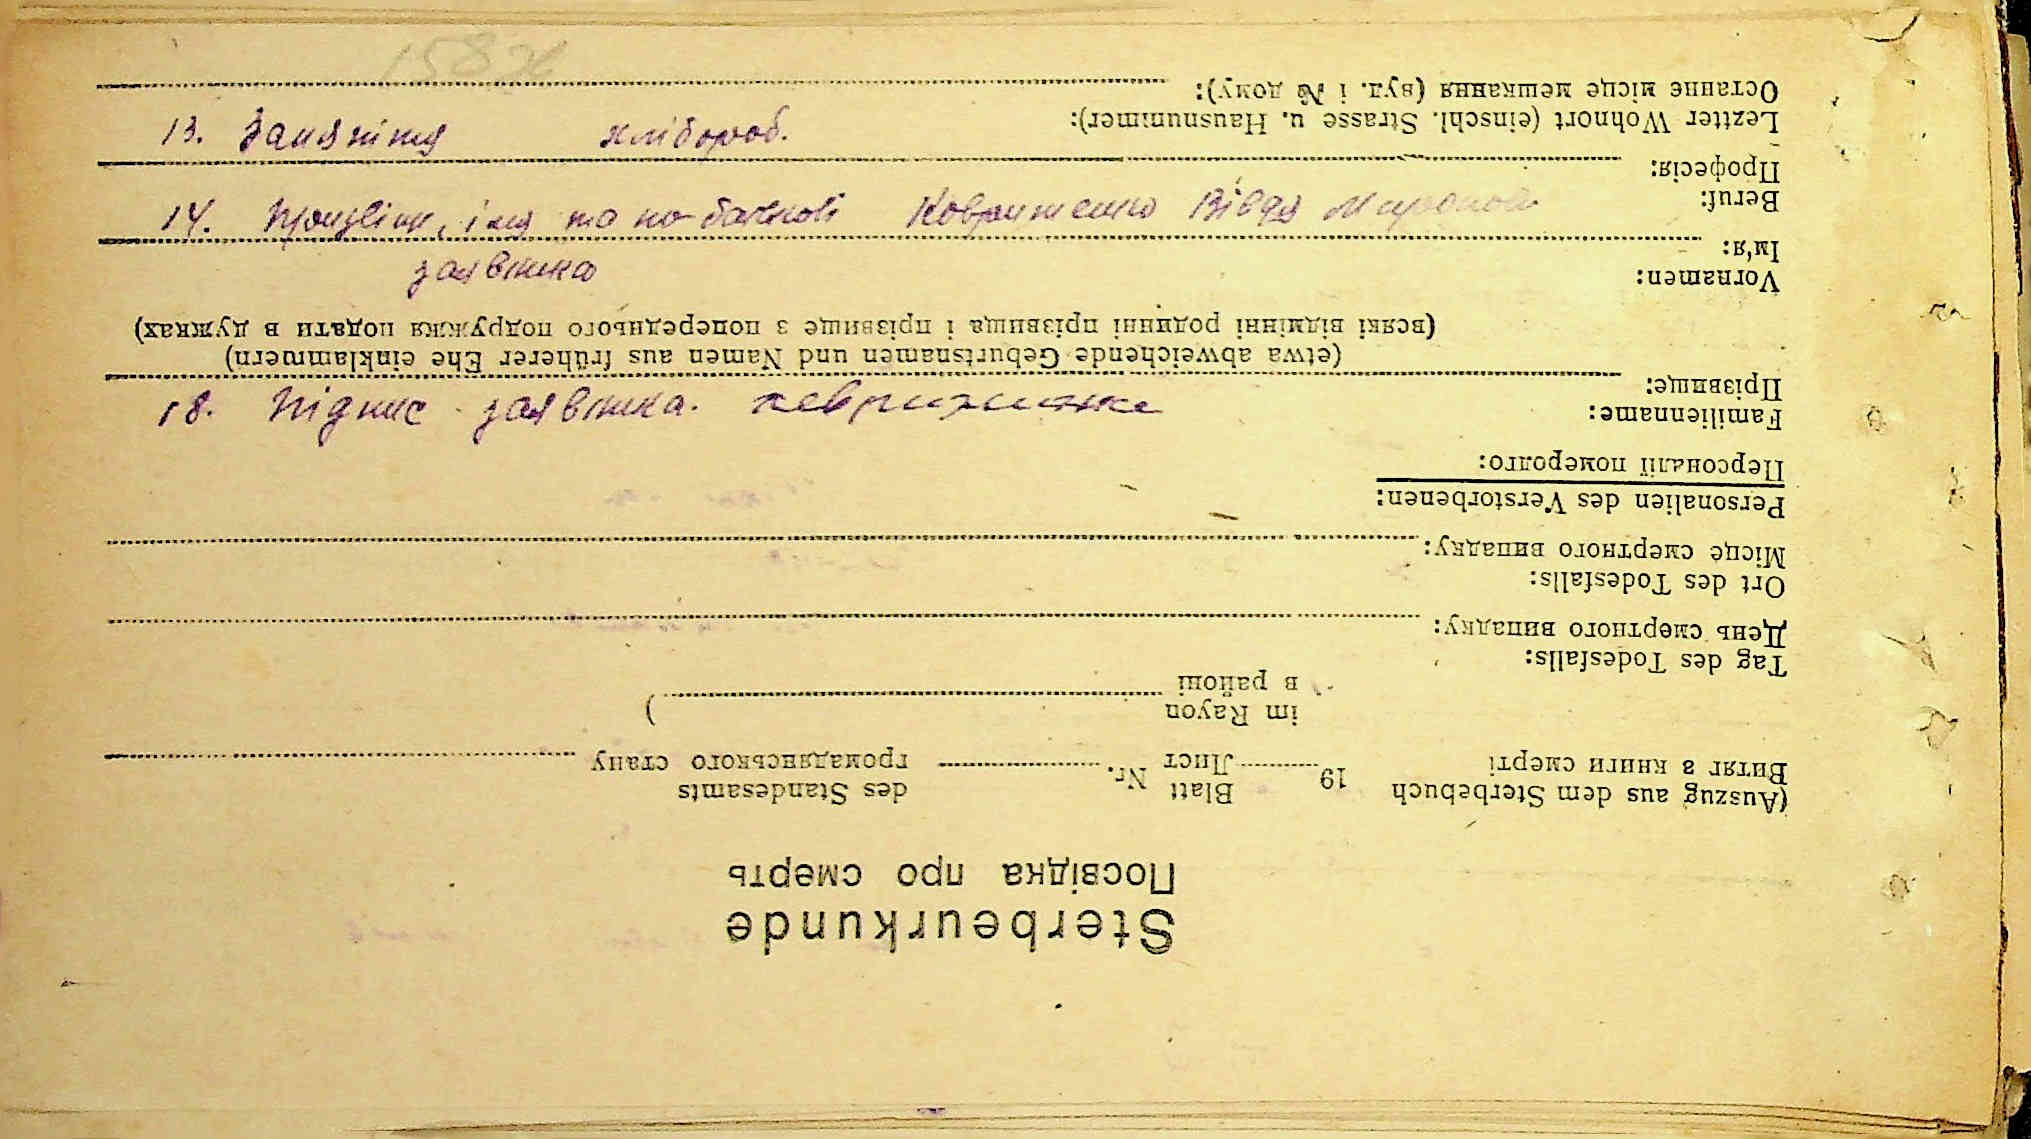 13. Заняття хлібороб.
14. Прізвіще, імя та по батькові Ковриженко Вівдя Миронов
заявника
18. Підпис заявника.
Sterbeurkunde
Посвідка про смерть
(Auszug aus dem Sterbebuch 19 Blatt Nr. des Standesamts
Витяг з книги смерті Лист громадянського стану
im Rayon )
в районі
Tag des Todesfalls:
День смертного випадку:
Ort des Todesfalls:
Місце смертного випадку:
Personalien des Verstorbenen:
Персоналії померолго:
Familienname:
Прізвище:
(etwa abweichende Geburtsnamen und Namen aus früherer Ehe einklammern)
(всякі відмінні родинні прізвища і прізвище з попереднього подружжя подати в дужках)
Vornamen:
Ім'я:
Beruf:
Професія:
Lezlter Wohnort (einschl. Strasse u. Hausnummer):
Останне місце мешкання (вул. і № дому):